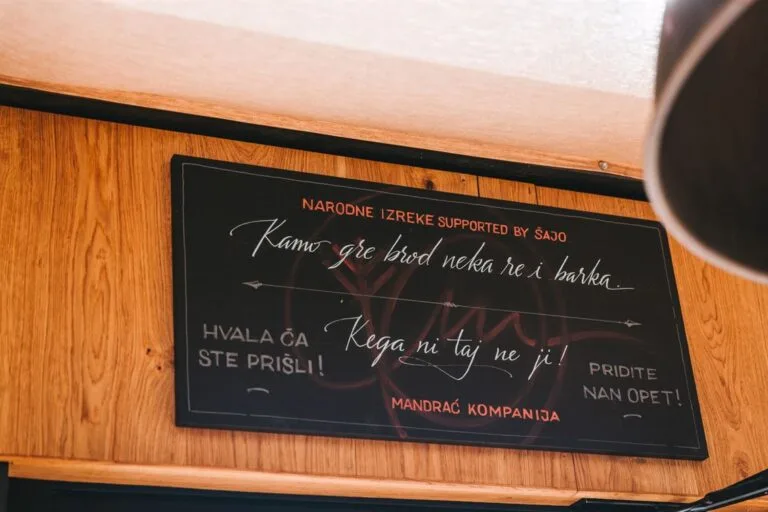 NARODNE IZREKE SUPPORTED BY ŠAJO
Kamo gre brod neka re i barka.
Kega ni taj ne ji!
HVALA ĆA
STE PRIŠLI!
PRIDITE
NAN OPET!
MANDRAĆ KOMPANIJA